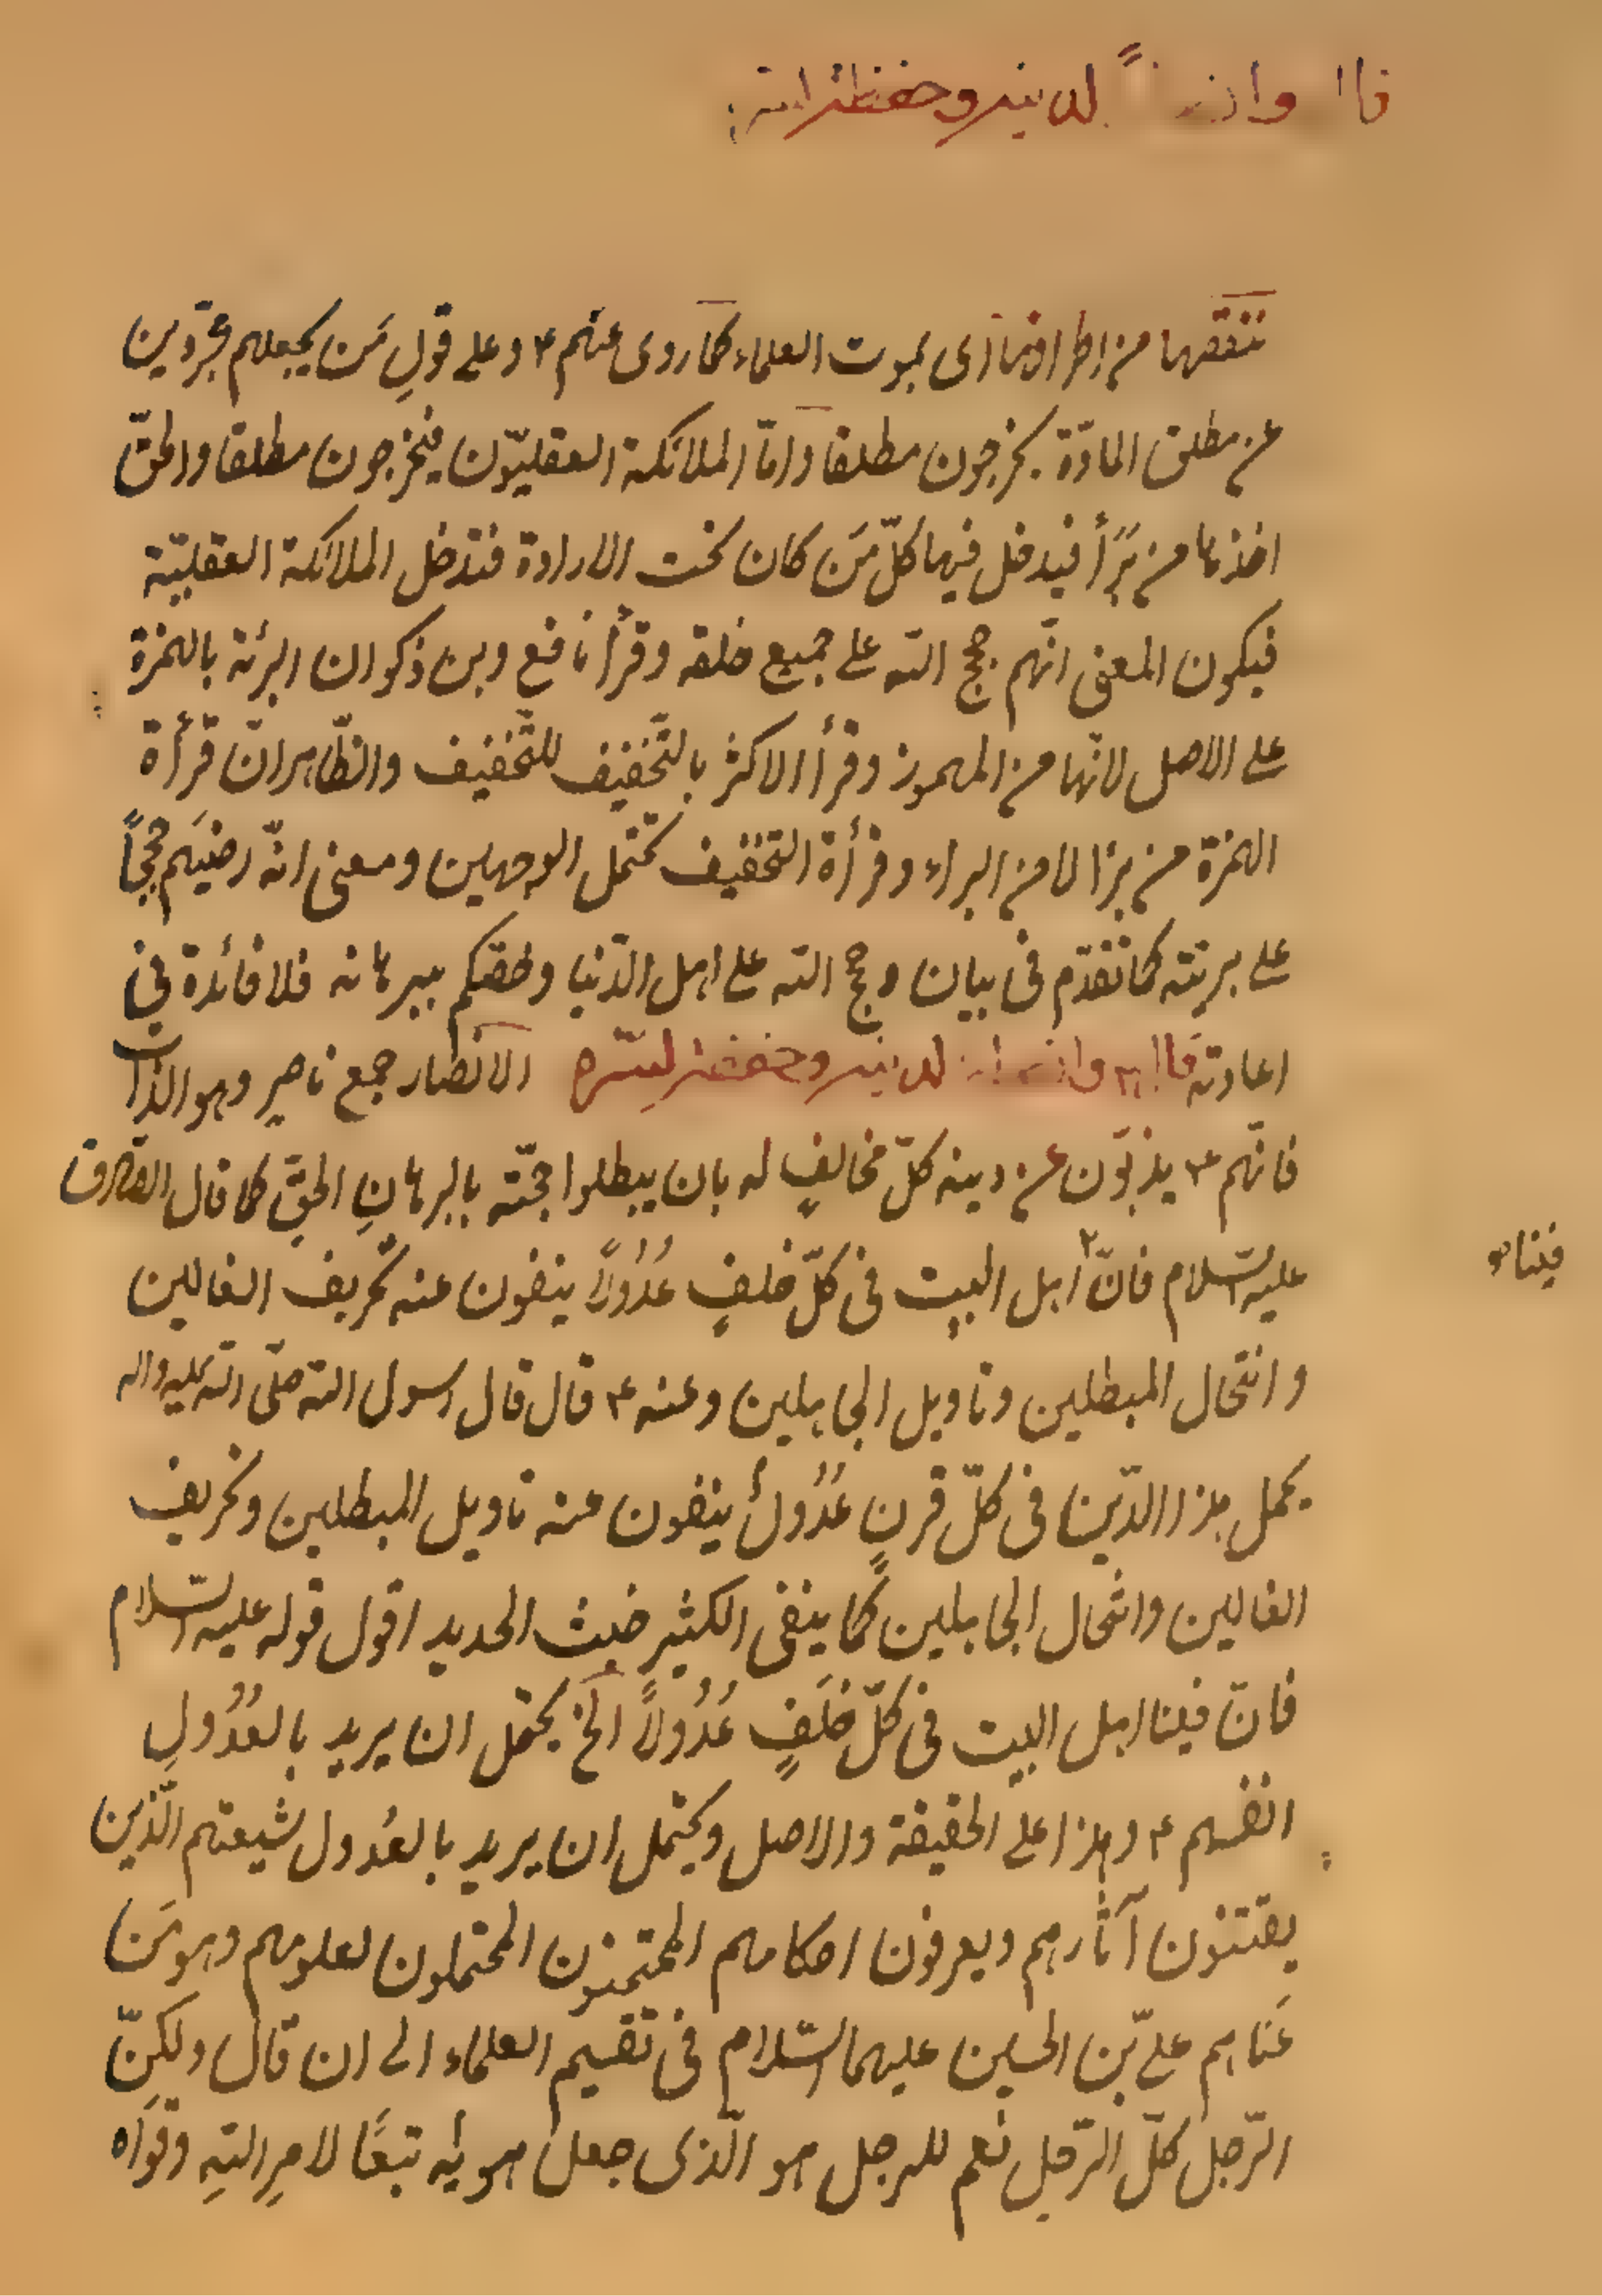 لدينه وحفظة لسره
ننقصها من اطرافها اى بموت العلماء كما روى عنهم ع وعلى قولِ مَن يجعلهم مجرّدين
عن مطلق المادّة يخرجون مطلقا وامّا الملائكة العقليّون فيخرجون مطلقا والحقّ
اخذها من بَرَأَ فيدخل فيها كلّ مَن كان تحت الارادة فتدخل الملائكة العقليّة
فيكون المعنى انّهم حجج الله على جميع خلقه وقرأ نافع وبن ذكوان البرئة بالهمزة
على الاصل لانّها من المهموز وقرأ الاكثر بالتّخفيف للتّخفيف والظّاهر انّ قرأة
الهمزة من برأ لا من البراء وقرأة التخفيف تحتمل الوجهين ومعنى انّه رضيَهم حججاً
على بريّته كما تقدّم فى بيان وحجج الله على اهل الدّنيا ولحقتكم ببرهانه فلا فائدة فى
اعادته قال ع وانصارا لدينه وحفظة لسرّه الانصار جمع ناصر وهو الذابّ
فانّهم ع يذبّون عن دينه كلّ مخالفٍ له بان يبطلوا حجّته بالبرهانِ الحقّ كما قال الصّادق
عليه السّلام فانّ ٢ اهل البيت فى كلّ خلفٍ عُدُولاً ينفون عنه تحريف الغالين
فينا صح
وانتحال المبطلين وتاويل الجاهلين وعنه ع قال قال رسول الله صلّى الله عليه واله
يحمل هذا الدّين فى كلّ قرنٍ عُدُولٌ ينفون عنه تاويل المبطلين وتحريف
الغالين وانتحال الجاهلين كما ينفى الكثير خبث الحديد اقول قوله عليه السّلام
فانّ فينا اهل البيت فى كلّ خلَفٍ عُدُولاً الخ يحتمل ان يريد بالعُدُولِ
انفسهم ع وهذا على الحقيقة والاصل ويحتمل ان يريد بالعُدول شيعتهم الّذين
يقتفون آثارهم ويعرفون احكامهم الممتحنون المحتملون لعلومهم وهو مَن
عَناهم علىّ بن الحسين عليهما السّلام فى تقسيم العلماء الى ان قال ولكنّ
الرّجل كلّ الرّجل نعم الرجل هو الّذى جعل هويٰه تبعًا لامرِ اللهِ وقوَاه